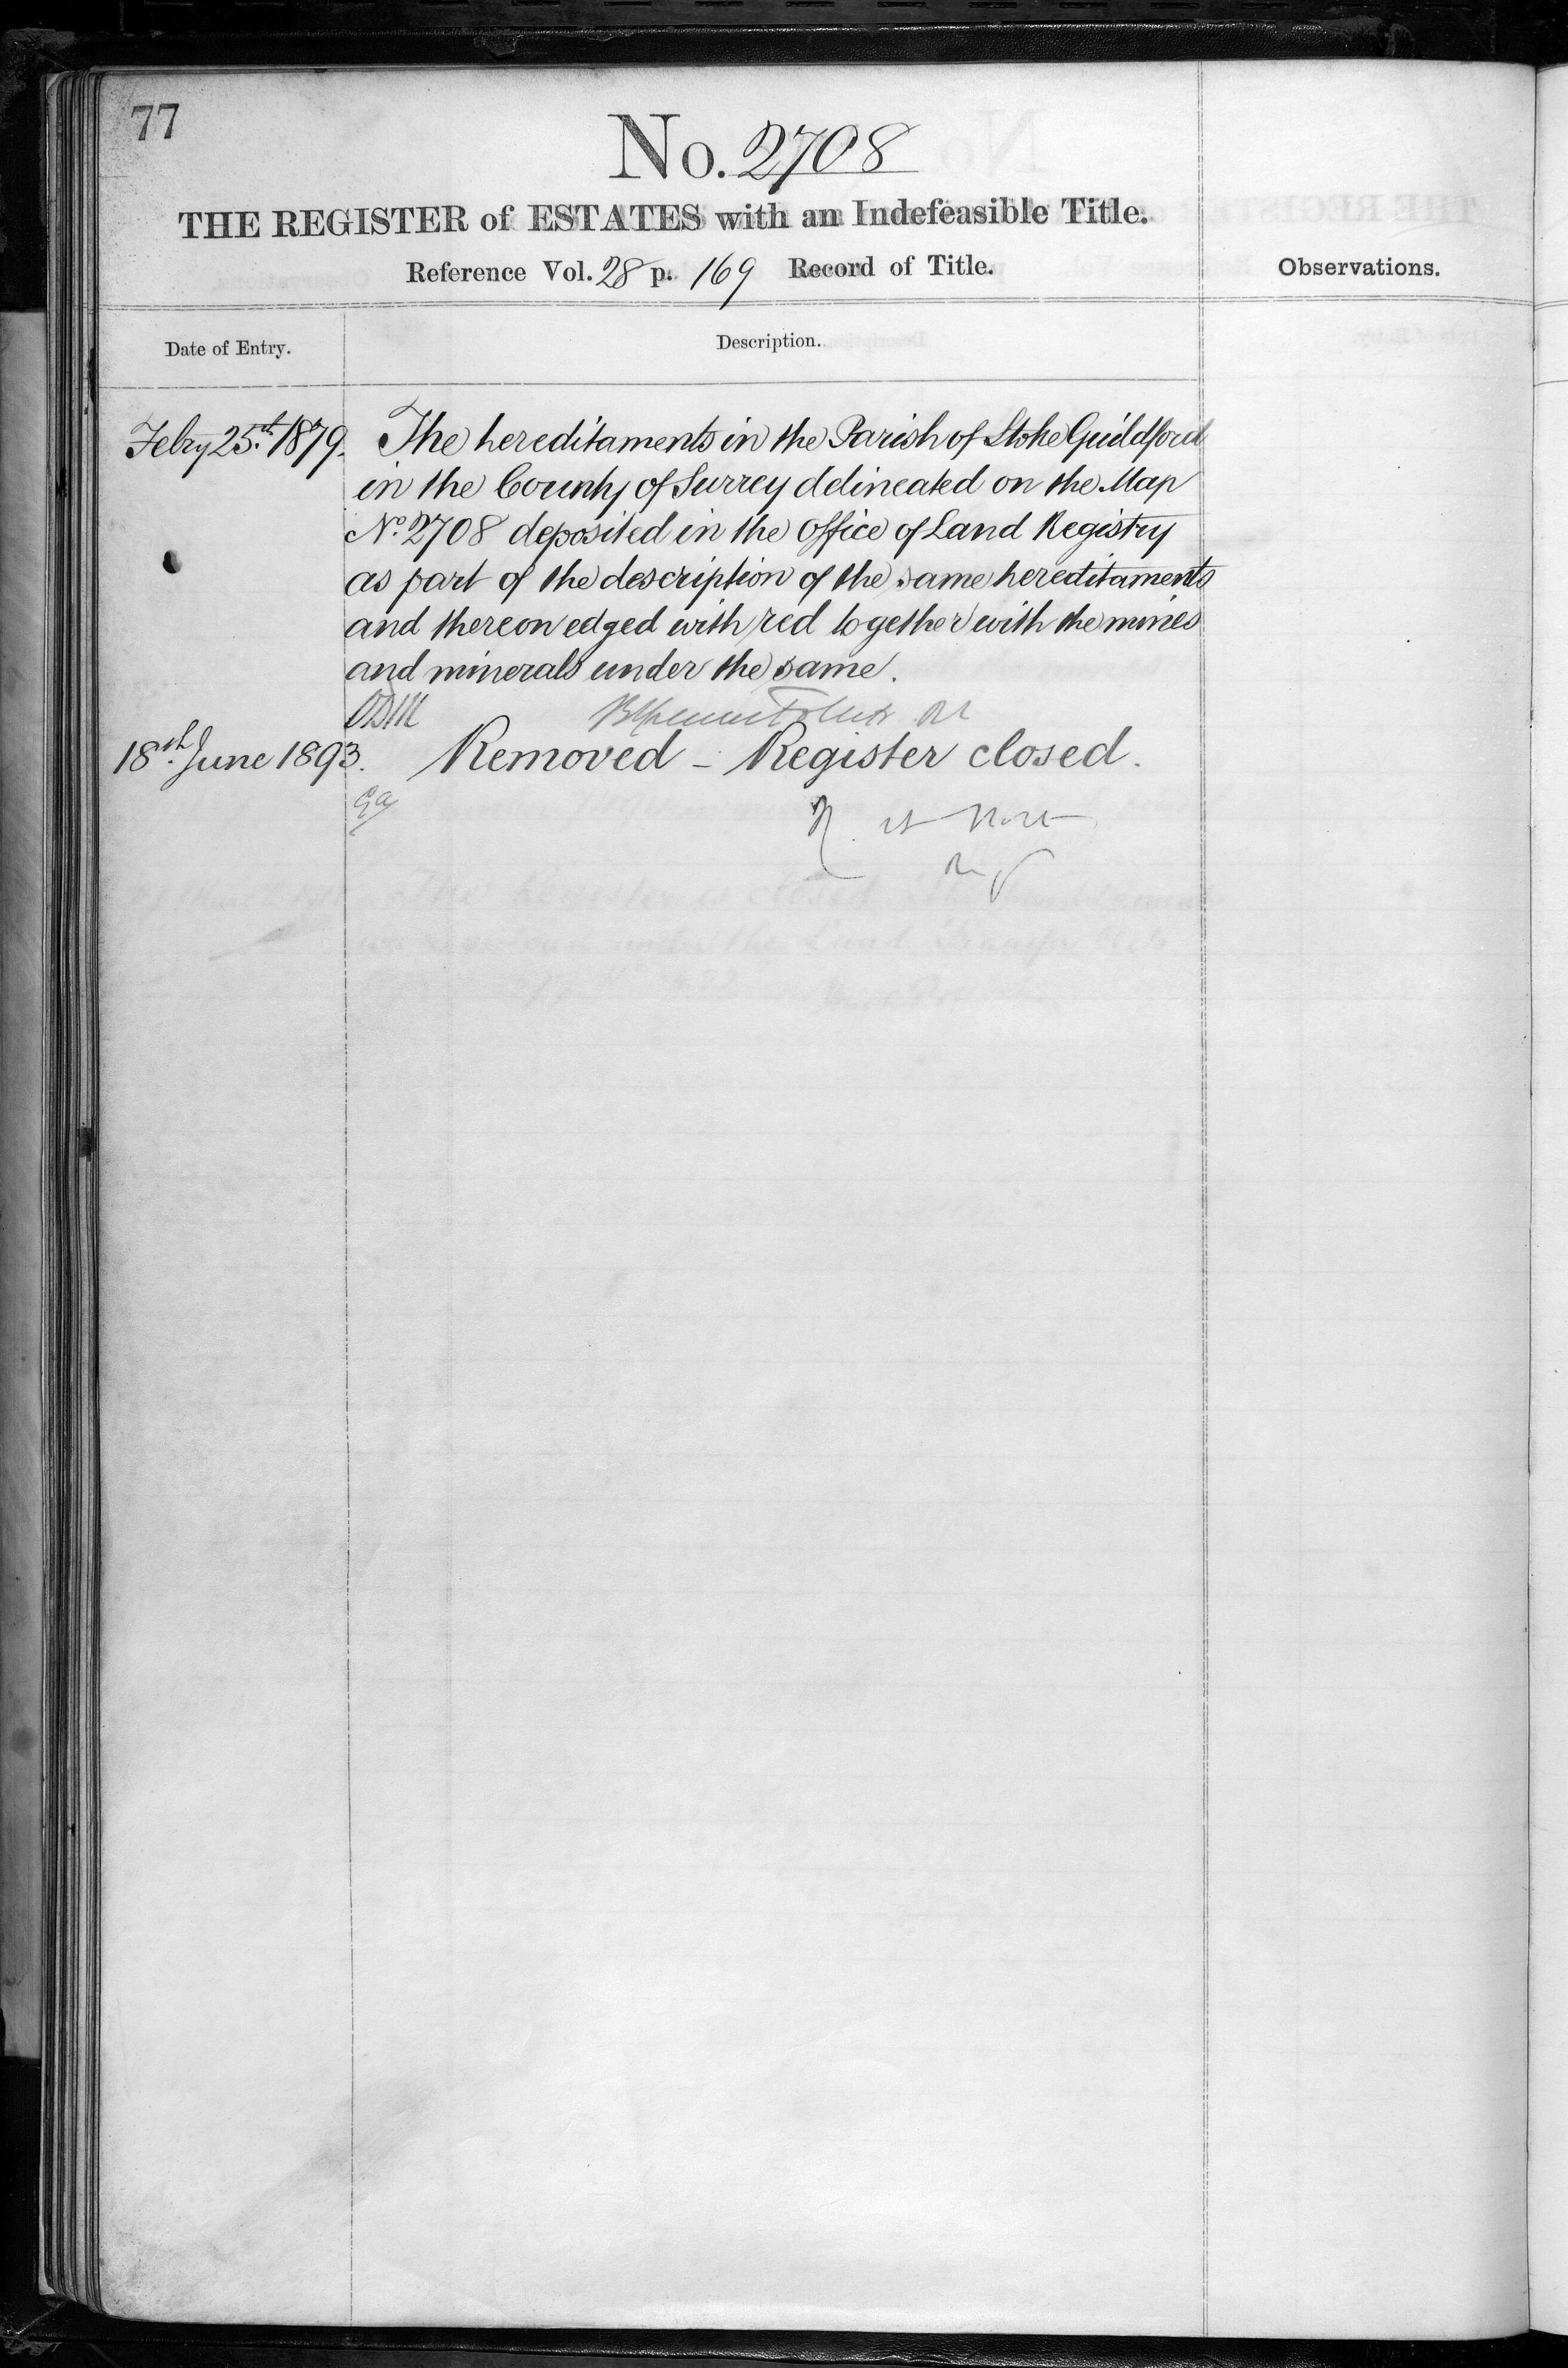 77
No. 2708
THE REGISTER of ESTATES with an Indefeasible Title.
Reference Vol. 28 p. 169 Record of Title.
Observations.
Date of Entry.
Description.
Febry 25th 1879. The hereditaments in the Parish of Stoke Guildford
in the County of Surrey delineated on the Map
No. 2708 deposited in the Office of Land Registry
as part of the description of the same hereditaments
and thereon edged with red together with the mines
and minerals under the same.
18th June 1893. Removed - Register closed.